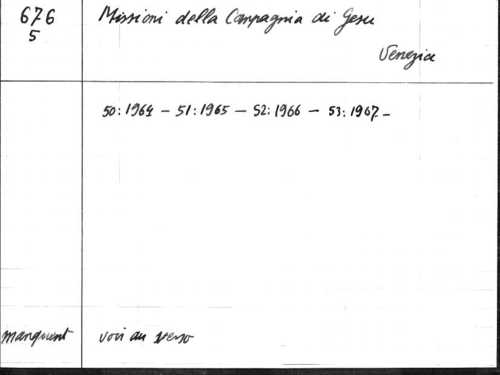 676
5
Missioni della Compagnia di Gesu
Venezia
50:1964 – 51:1965 – 52:1966 – 53:1967 –
manquent
voir au verso